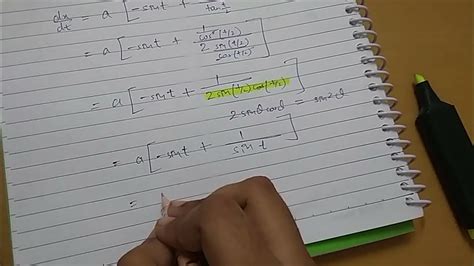 dx/dt = a [ -sin t + / tan t/2
= a [ -sin t + 1/cos²(t/2) / 2 sin(t/2)/cos(t/2) ]
= a [ -sin t + 1 / 2 sin(t/2) cos(t/2) ]
2 sinθ cosθ = sin2θ
= a [ -sin t + 1 / sin t ]
=